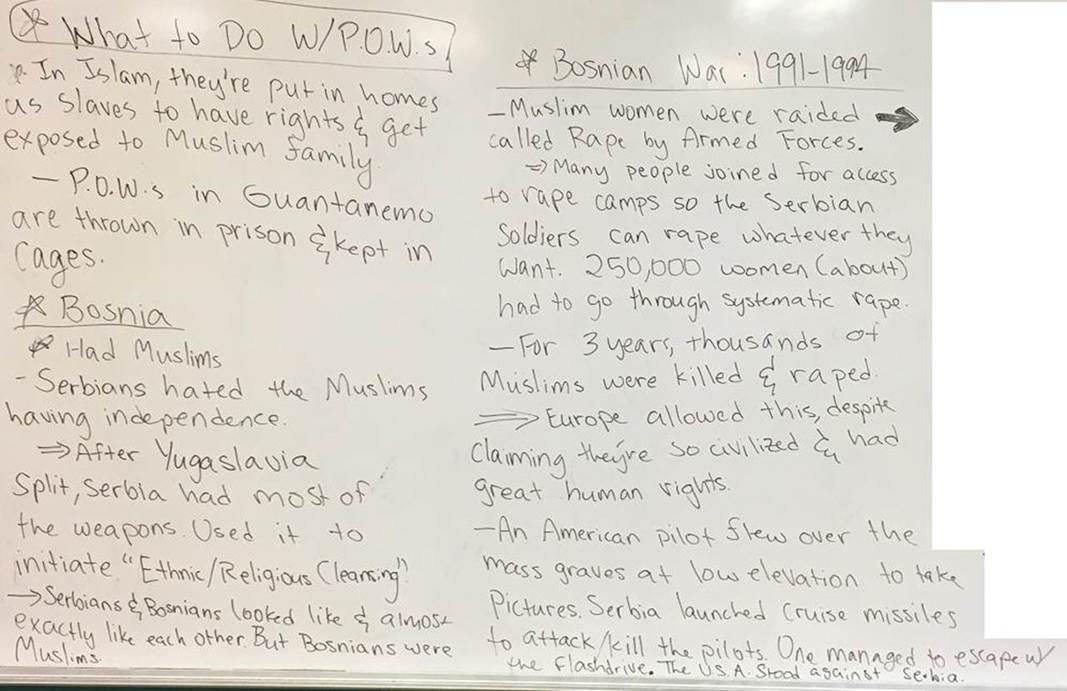 * What to Do W/P.O.W.s
* In Islam, they're put in homes
as slaves to have rights & get
exposed to Muslim family.
- P.O.W.s in Guantanemo
are thrown in prison & kept in
Cages.
* Bosnia
* Had Muslims
- Serbians hated the Muslims
having independence.
⇒ After Yugaslavia
Split, Serbia had most of
the weapons. Used it to
initiate "Ethnic/Religious Cleansing".
→ Serbians & Bosnians looked like & almost
exactly like each other. But Bosnians were
Muslims.
* Bosnian War: 1991-1994
- Muslim women were raided →
called Rape by Armed Forces.
⇒ Many people joined for access
to rape camps so the Serbian
Soldiers can rape whatever they
want. 250,000 women (about)
had to go through systematic rape.
- For 3 years, thousands of
Muslims were killed & raped.
⇒ Europe allowed this, despite
Claiming they're so civilized & had
great human rights.
- An American pilot flew over the
mass graves at low elevation to take
Pictures. Serbia launched cruise missiles
to attack/kill the pilots. One managed to escape w/
the flashdrive. The U.S.A. Stood against Serbia.